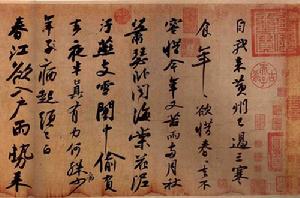 自我來黃州已過三寒
食年〻欲惜春〻去不
容惜今年又苦雨兩月秋
蕭瑟卧聞海棠花泥
污燕支雪闇中偷負
去夜半真有力何殊病少
年子病起頭已白
春江欲入戶雨勢來